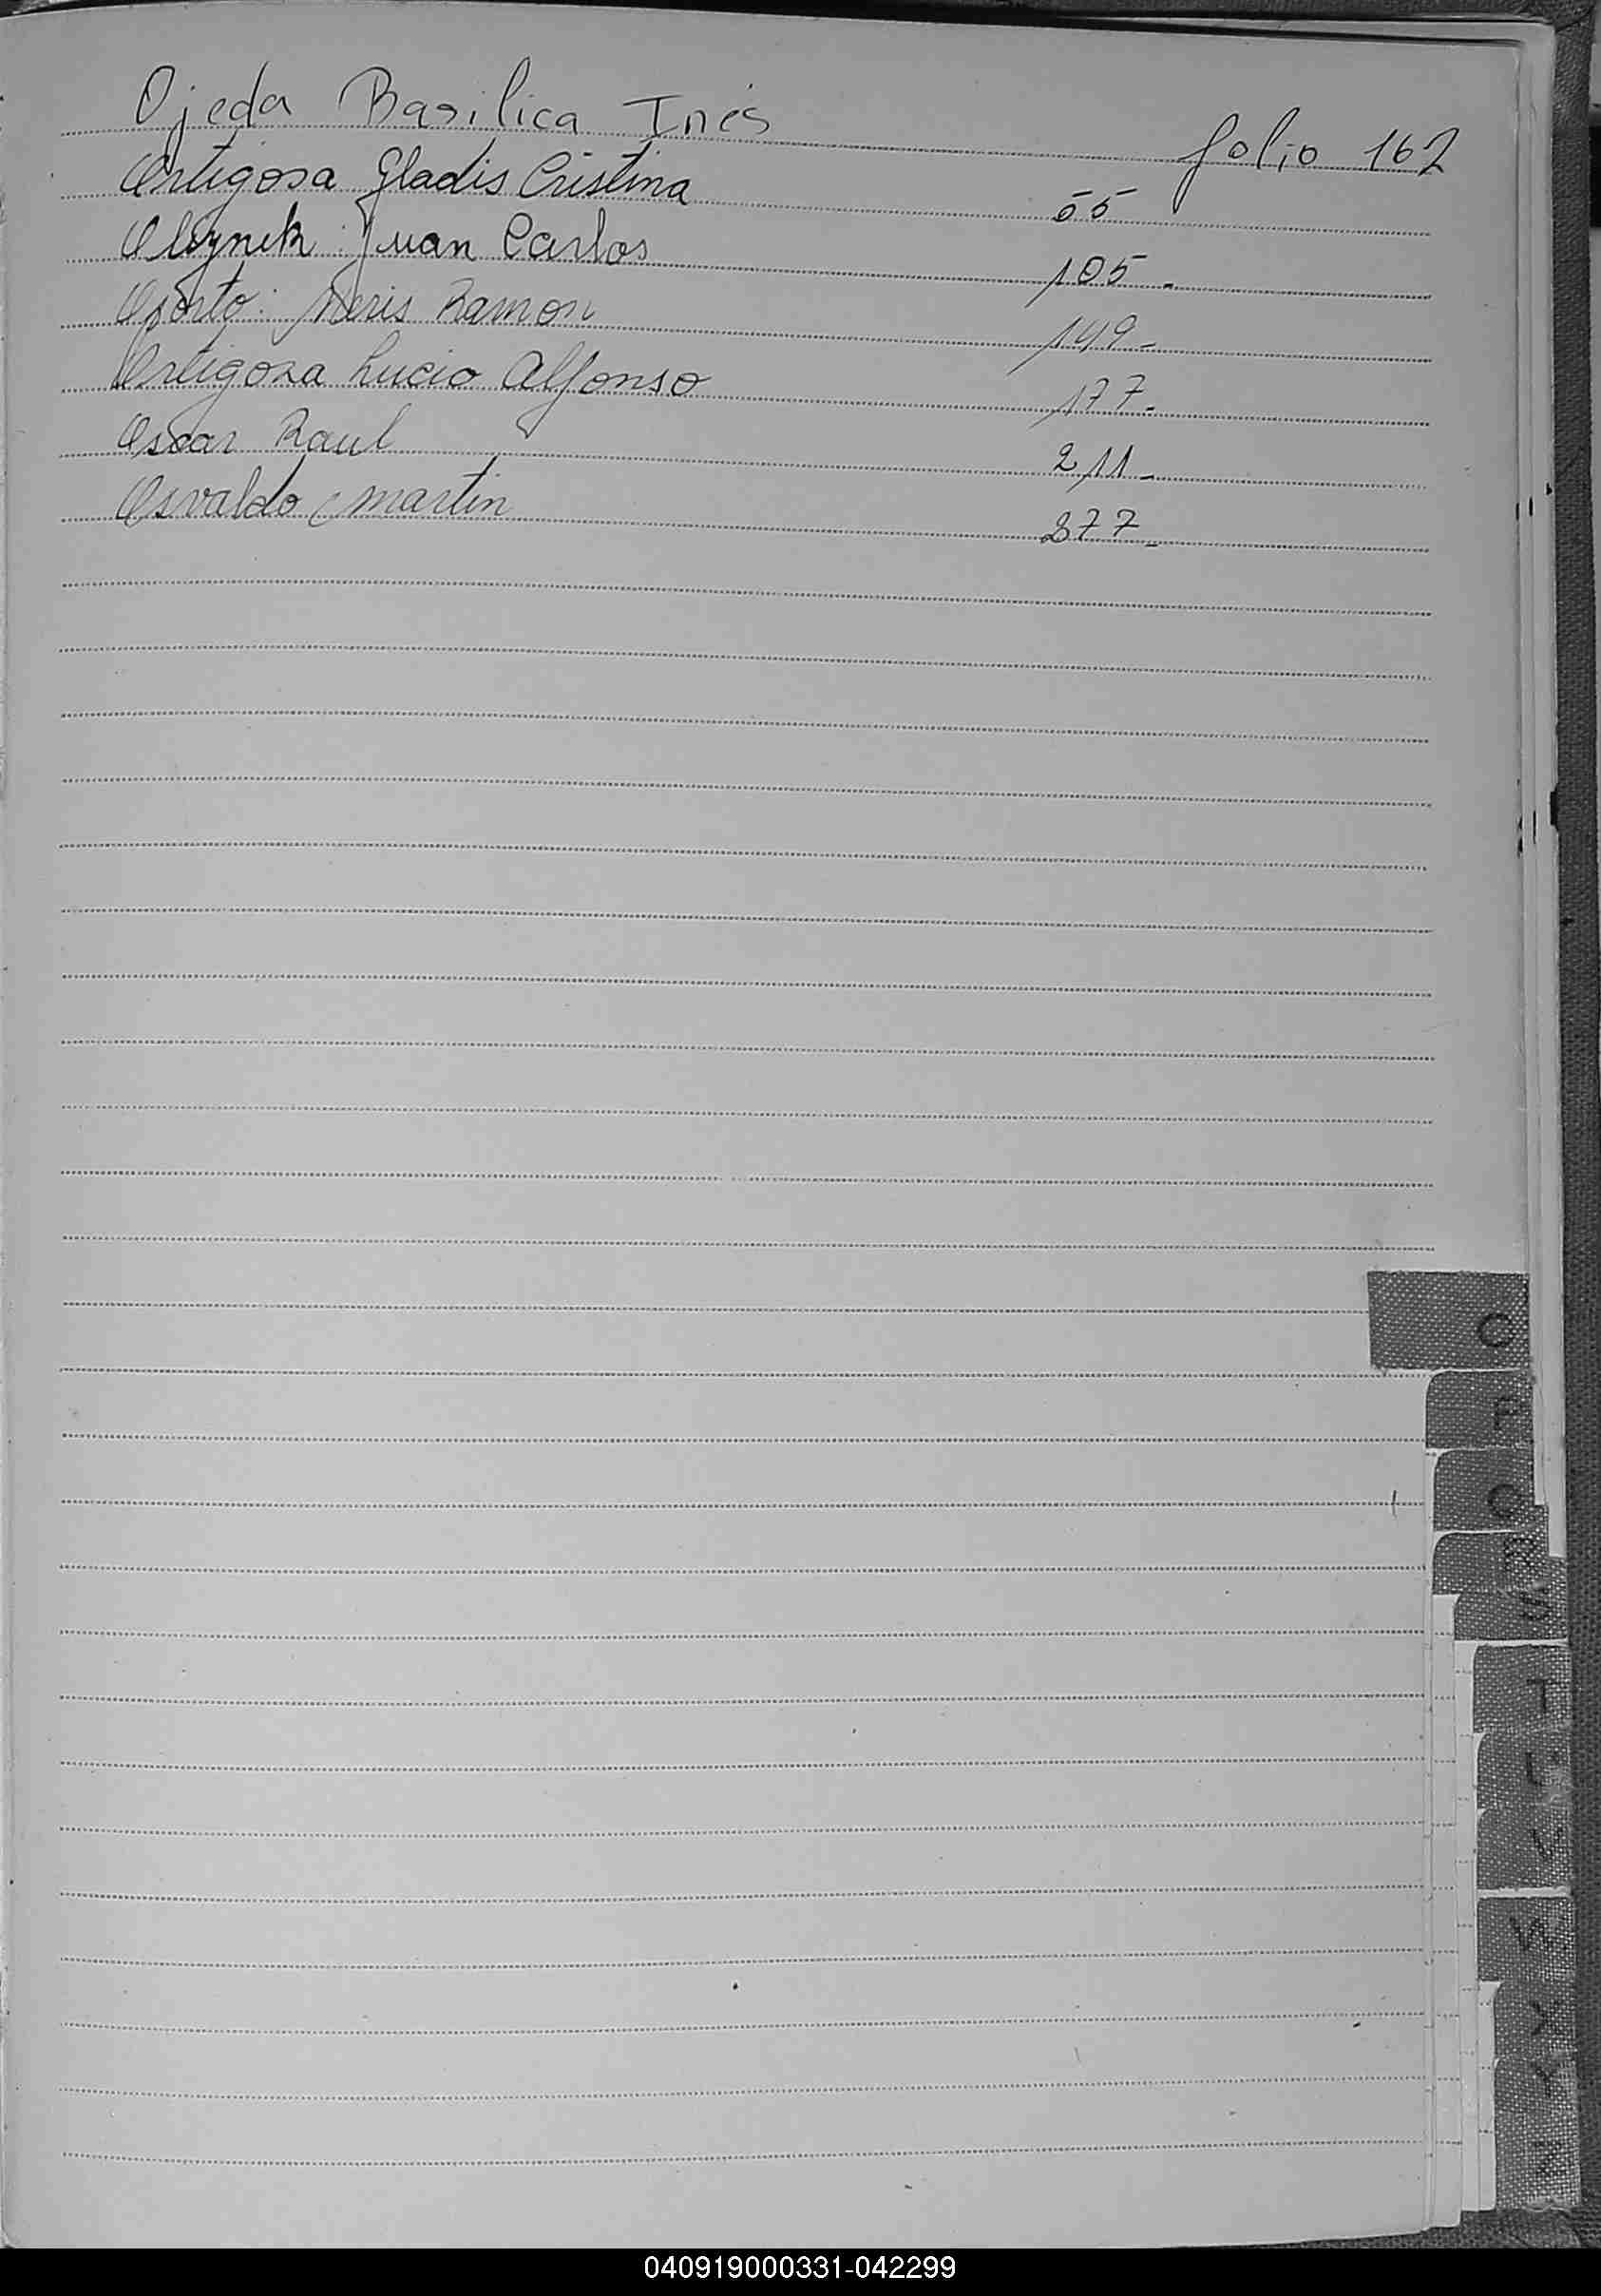 Ojeda Basilica Inés folio 162
Ortigosa Gladis Cristina 55
Olynek Juan Carlos 105.
Oporto: Neris Ramon 149-
Ortigoza Lucio Alfonso 177.
Oscar Raul 211-
Osvaldo Martin 277-
O
P
Q
R
S
T
U
V
W
X
Y
Z
040919000331-042299